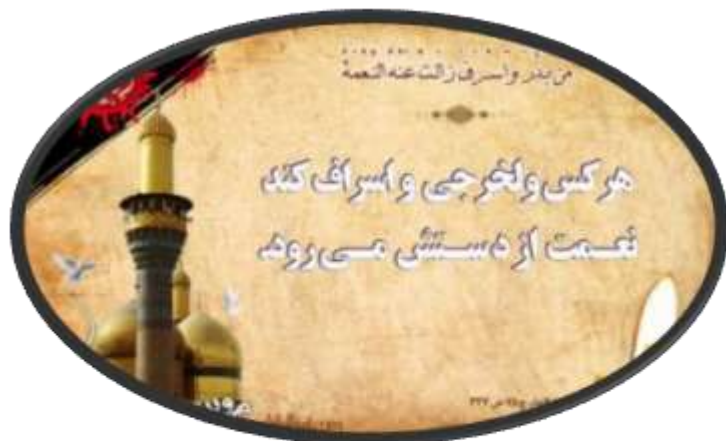 من بذر و اسرف زالت عنه النعمة
هر کس ولخرجی و اسراف کند
نعمت از دستش می رود.
ص ۳۲۷